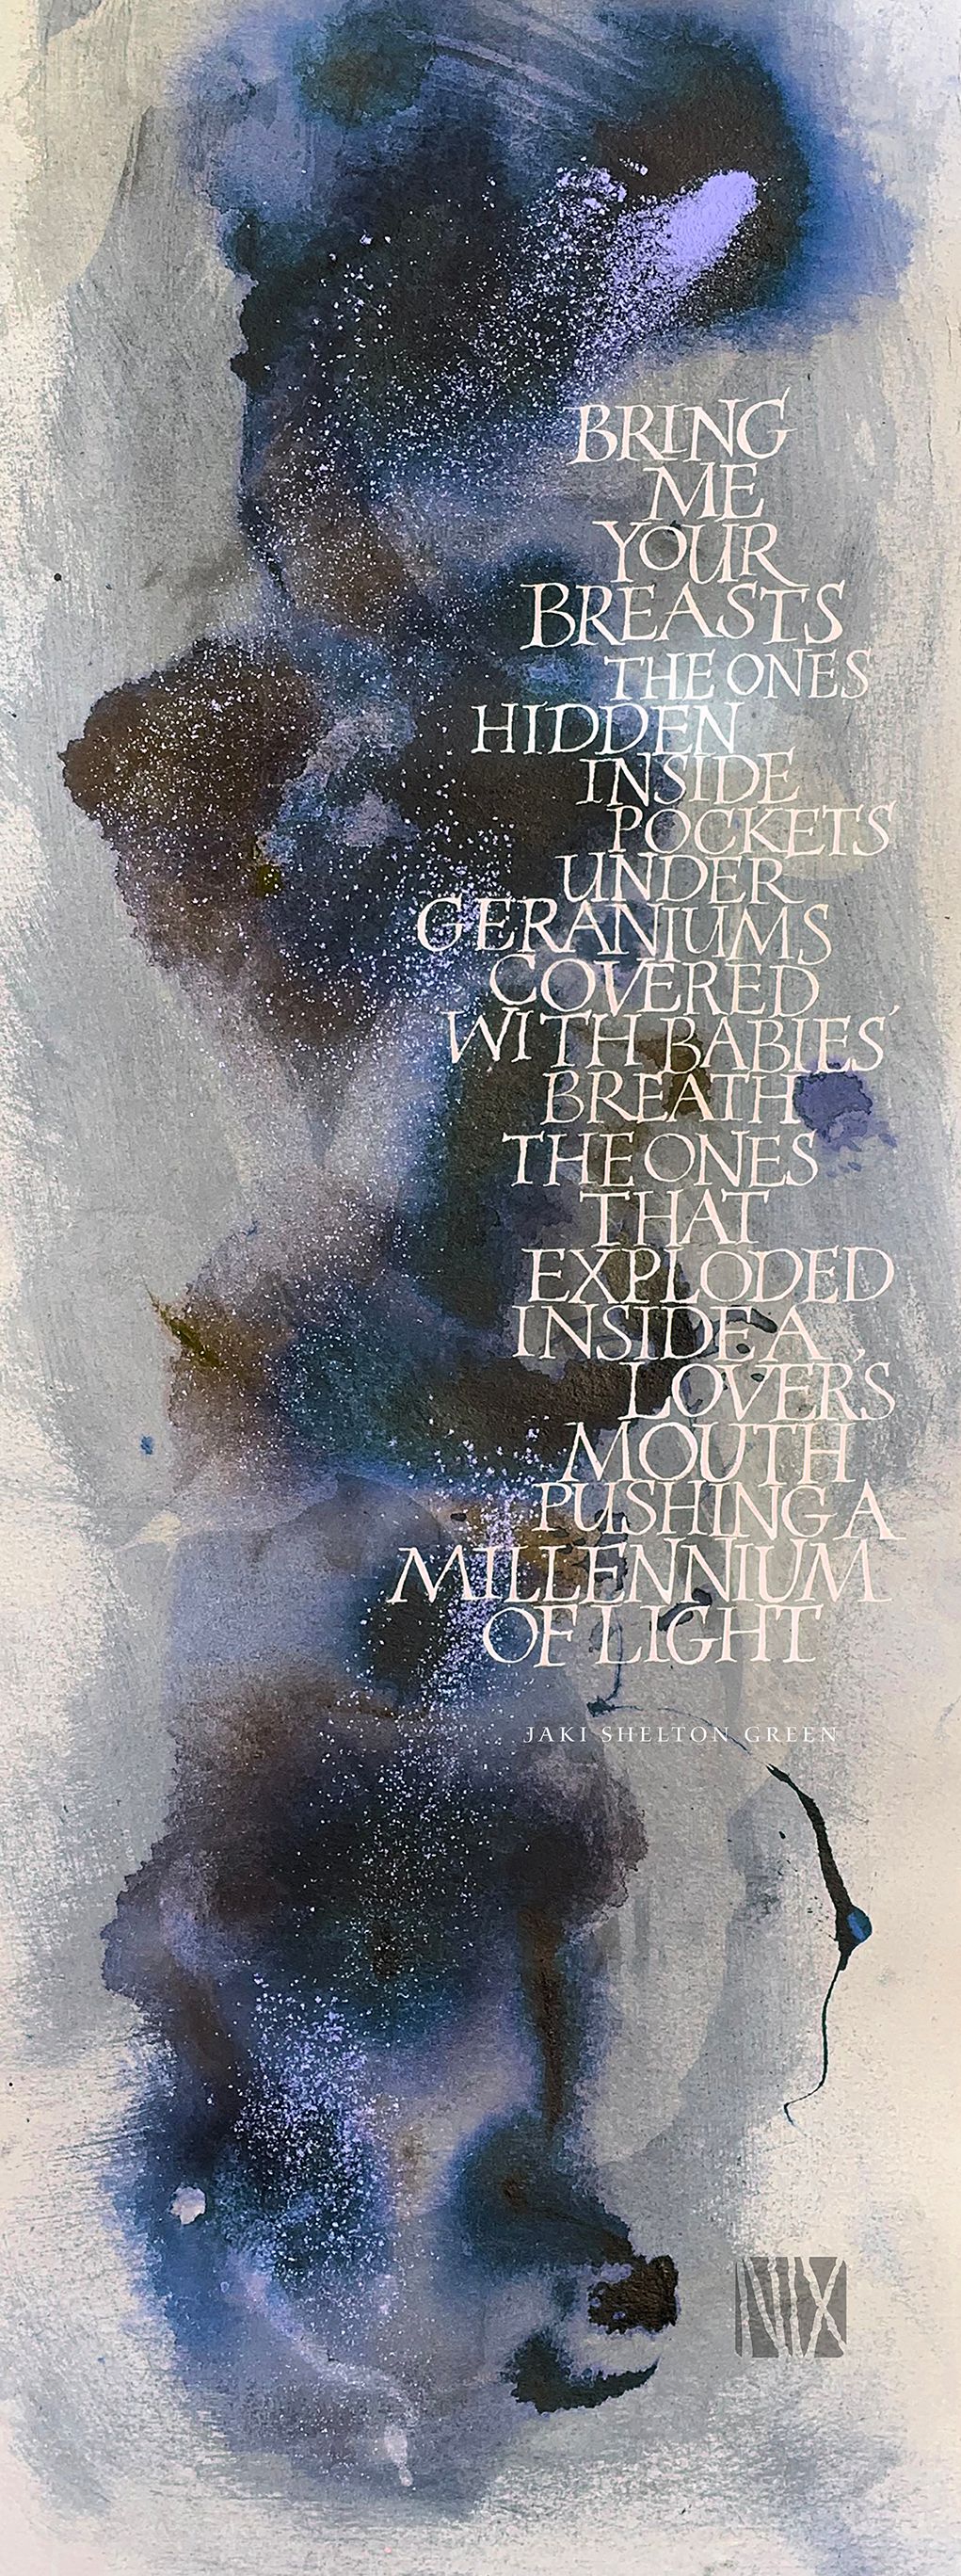 BRING
ME
YOUR
BREASTS
THE ONES
HIDDEN
INSIDE
POCKETS
UNDER
GERANIUMS
COVERED
WITH BABIES'
BREATH
THE ONES
THAT
EXPLODED
INSIDE A
LOVER'S
MOUTH
PUSHING A
MILLENNIUM
OF LIGHT
JAKI SHELTON GREEN
NIX